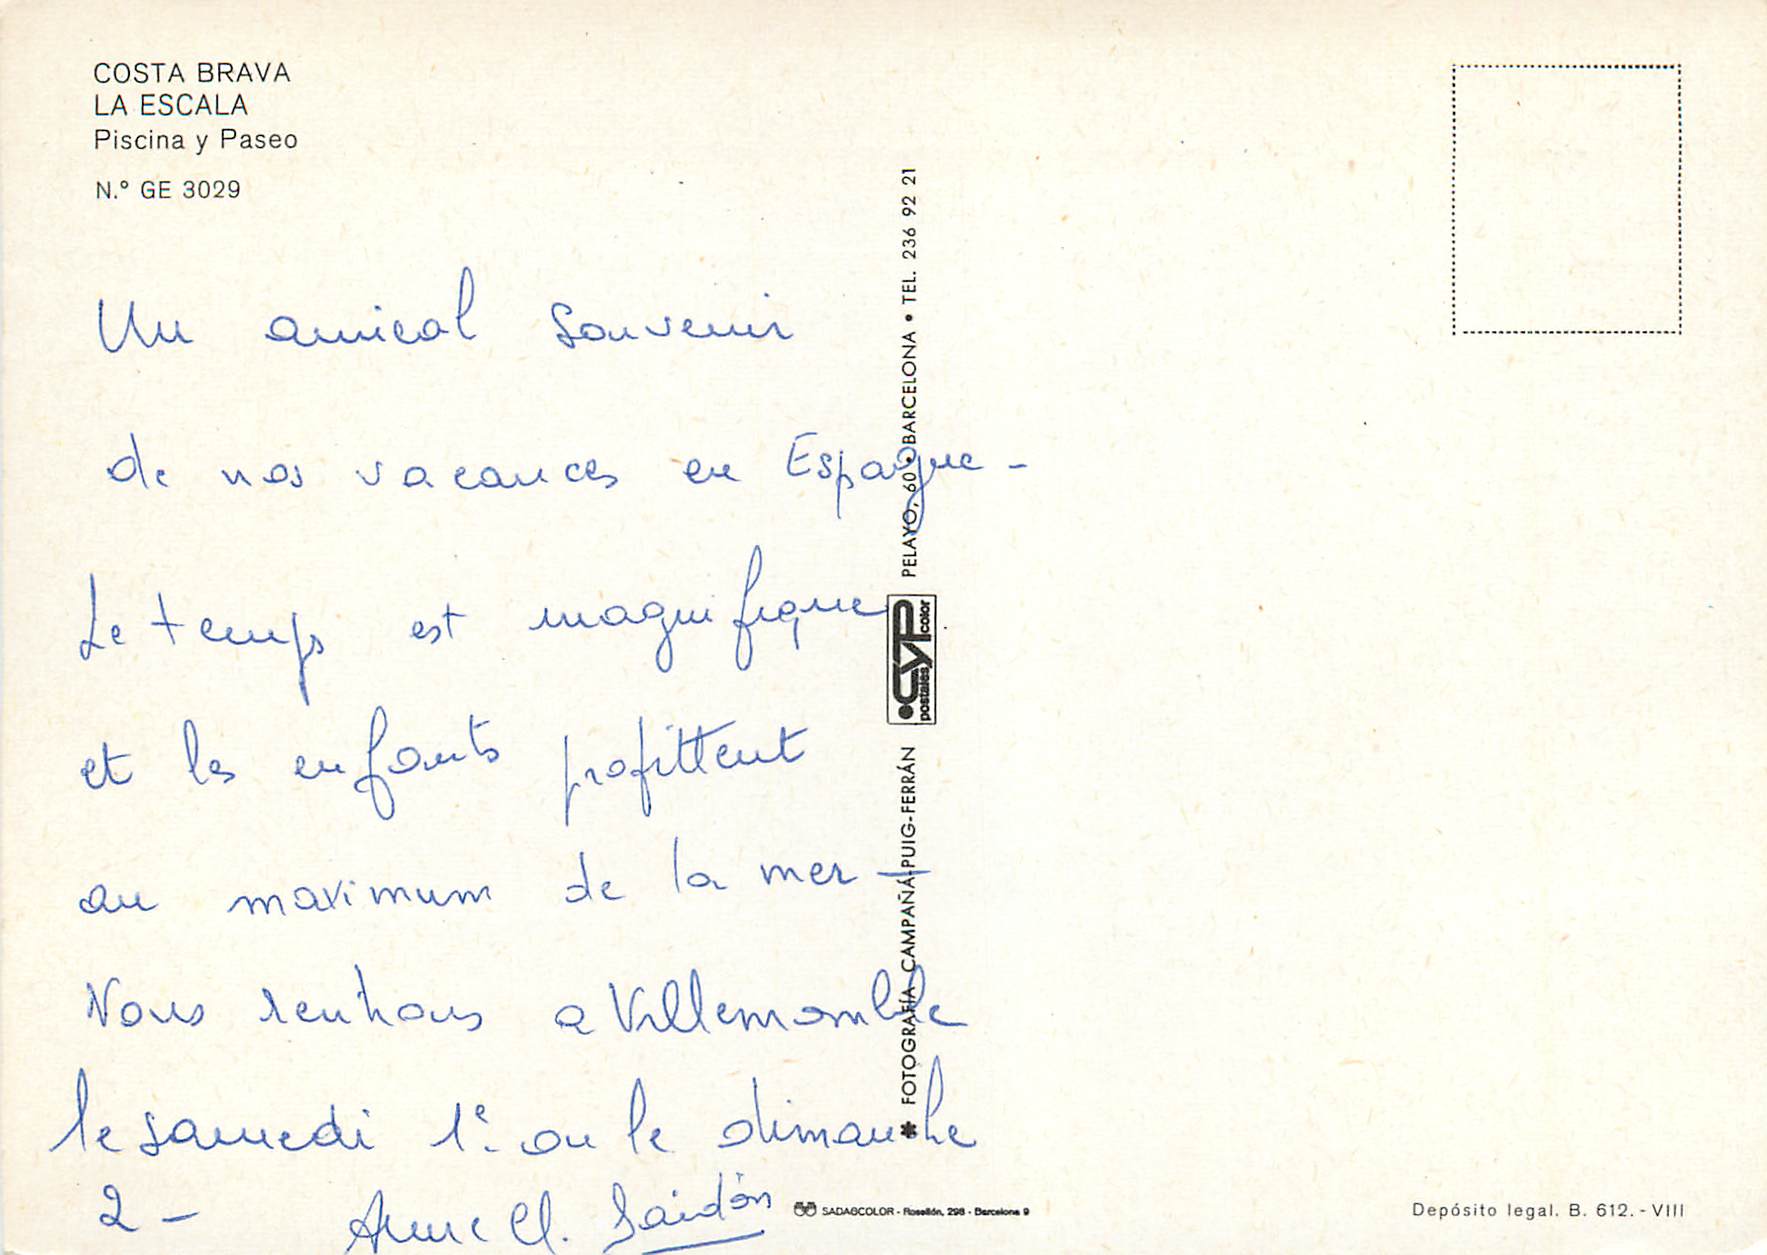 COSTA BRAVA
LA ESCALA
Piscina y Paseo
N.º GE 3029
Un amical souvenir
de nos vacances en Espagne -
Le temps est magnifique
et les enfants profittent
au maximum de la mer -
Nous rentrons a Villemomble
le samedi 1e. ou le dimanche
2 - Anne Cl.
✱ FOTOGRAFÍA CAMPAÑÁ-PUIG-FERRÁN
CYP
postales color
PELAYO, 60 • BARCELONA • TEL. 236 92 21
SADAGCOLOR - Rosellón, 298 - Barcelona 9
Depósito legal. B. 612. - VIII